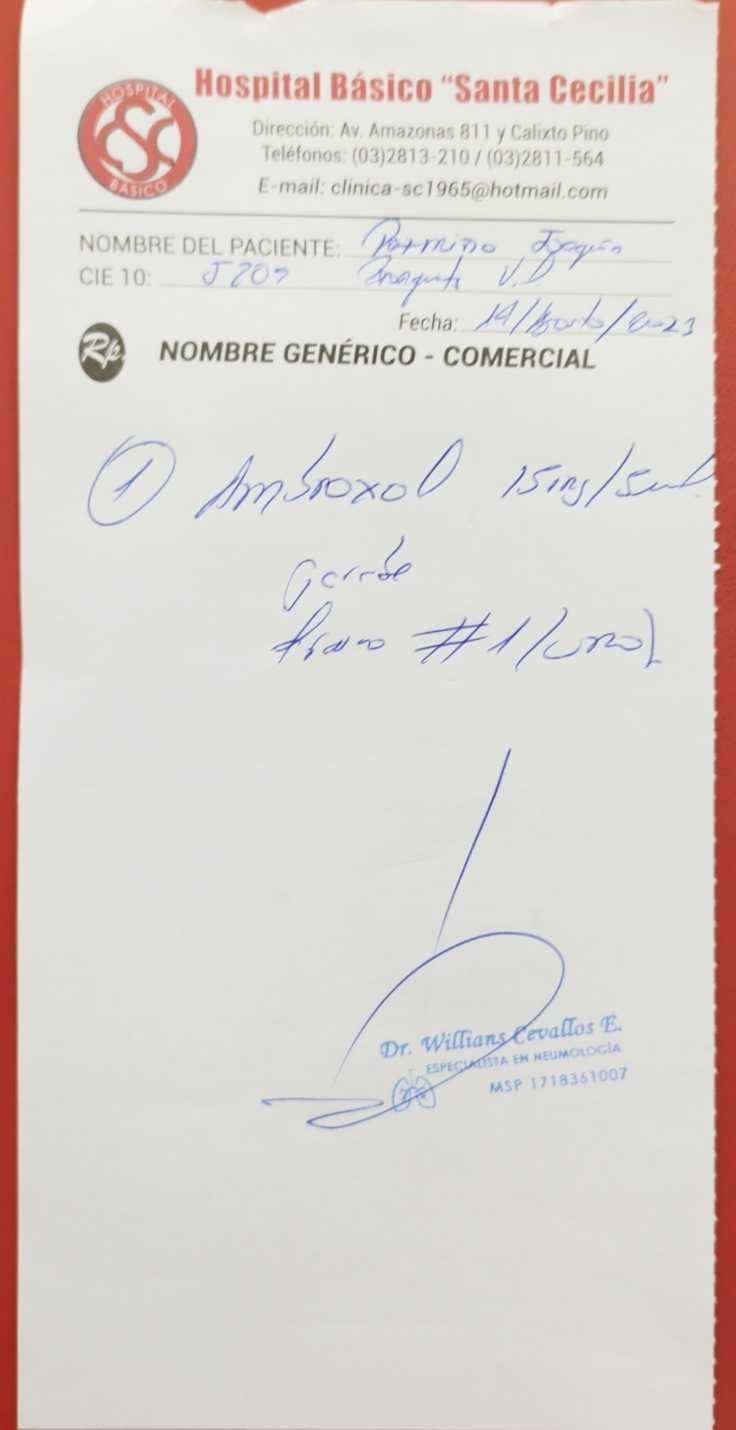 HOSPITAL
BÁSICO
Hospital Básico “Santa Cecilia”
Dirección: Av. Amazonas 811 y Calixto Pino
Teléfonos: (03)2813-210 / (03)2811-564
E-mail: clinica-sc1965@hotmail.com
NOMBRE DEL PACIENTE: Joaquín
CIE 10: J209
Fecha: 14/Agosto/2023
Rp. NOMBRE GENÉRICO - COMERCIAL
1 Ambroxol 15mg/5ml
Jarabe
Frasco #1 (uno)
Dr. Willians Cevallos E.
ESPECIALISTA EN NEUMOLOGÍA
MSP 1718361007